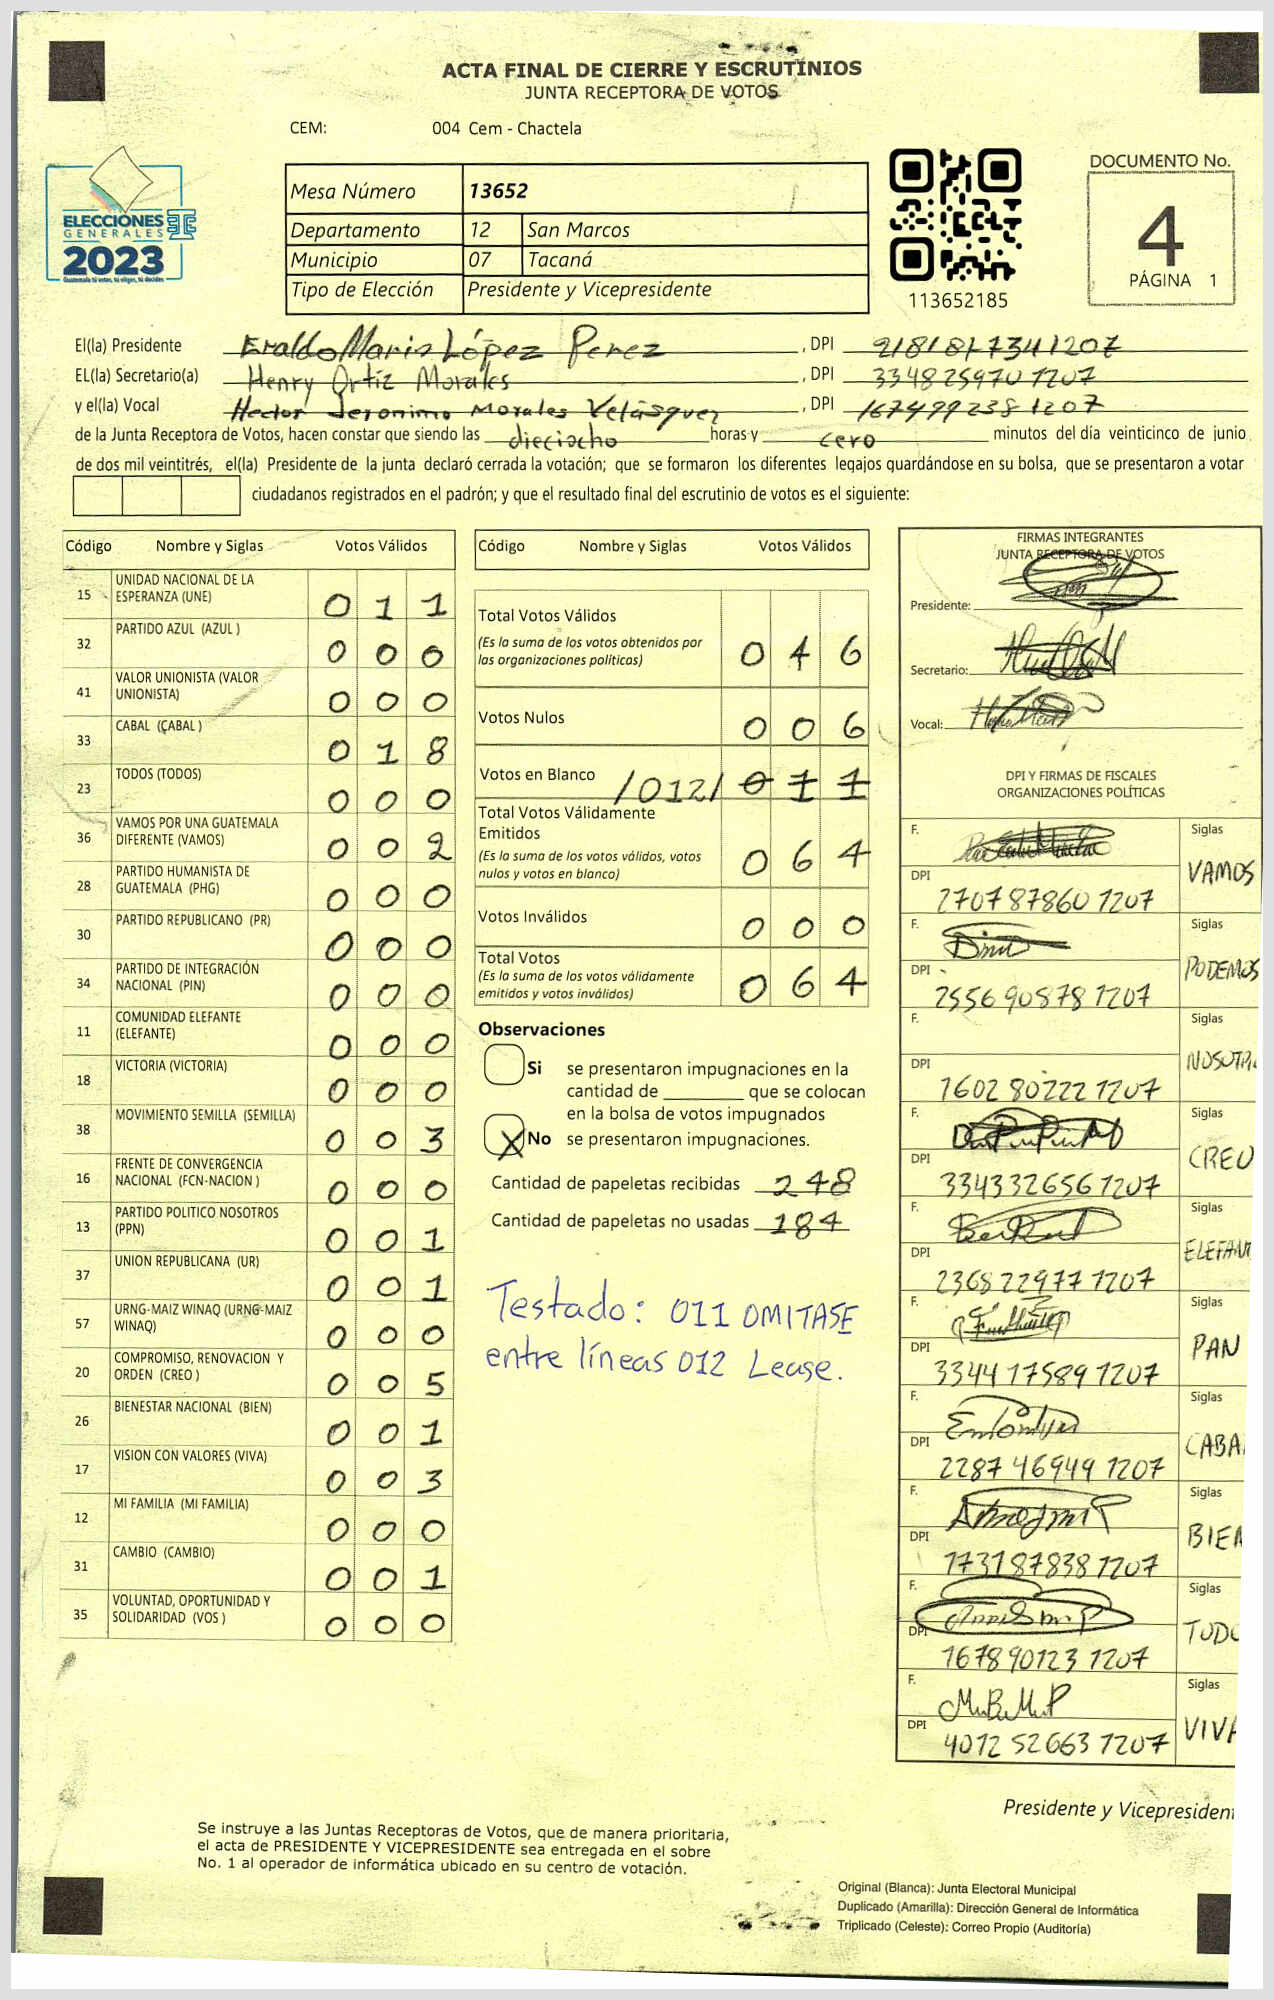 ACTA FINAL DE CIERRE Y ESCRUTINIOS
JUNTA RECEPTORA DE VOTOS
CEM: 004 Cem - Chactela
ELECCIONES
GENERALES
2023
Guatemala tú votas, tú eliges, tú decides
Mesa Número 13652
Departamento 12 San Marcos
Municipio 07 Tacaná
Tipo de Elección Presidente y Vicepresidente
113652185
DOCUMENTO No.
4
PÁGINA 1
El(la) Presidente Eraldo Mario López Perez, DPI 2181817341207
EL(la) Secretario(a) Henry Ortiz Morales, DPI 3348259701207
y el(la) Vocal Hector Jeronimo Morales Velásquez, DPI 1674992381207
de la Junta Receptora de Votos, hacen constar que siendo las dieciocho horas y cero minutos del día veinticinco de junio
de dos mil veintitrés, el(la) Presidente de la junta declaró cerrada la votación; que se formaron los diferentes legajos quardándose en su bolsa, que se presentaron a votar
ciudadanos registrados en el padrón; y que el resultado final del escrutinio de votos es el siguiente:
Código Nombre y Siglas Votos Válidos
15 UNIDAD NACIONAL DE LA ESPERANZA (UNE) 0 1 1
32 PARTIDO AZUL (AZUL ) 0 0 0
41 VALOR UNIONISTA (VALOR UNIONISTA) 0 0 0
33 CABAL (CABAL ) 0 1 8
23 TODOS (TODOS) 0 0 0
36 VAMOS POR UNA GUATEMALA DIFERENTE (VAMOS) 0 0 2
28 PARTIDO HUMANISTA DE GUATEMALA (PHG) 0 0 0
30 PARTIDO REPUBLICANO (PR) 0 0 0
34 PARTIDO DE INTEGRACIÓN NACIONAL (PIN) 0 0 0
11 COMUNIDAD ELEFANTE (ELEFANTE) 0 0 0
18 VICTORIA (VICTORIA) 0 0 0
38 MOVIMIENTO SEMILLA (SEMILLA) 0 0 3
16 FRENTE DE CONVERGENCIA NACIONAL (FCN-NACION ) 0 0 0
13 PARTIDO POLITICO NOSOTROS (PPN) 0 0 1
37 UNION REPUBLICANA (UR) 0 0 1
57 URNG-MAIZ WINAQ (URNG-MAIZ WINAQ) 0 0 0
20 COMPROMISO, RENOVACION Y ORDEN (CREO ) 0 0 5
26 BIENESTAR NACIONAL (BIEN) 0 0 1
17 VISION CON VALORES (VIVA) 0 0 3
12 MI FAMILIA (MI FAMILIA) 0 0 0
31 CAMBIO (CAMBIO) 0 0 1
35 VOLUNTAD, OPORTUNIDAD Y SOLIDARIDAD (VOS ) 0 0 0
Código Nombre y Siglas Votos Válidos
Total Votos Válidos 0 4 6
(Es la suma de los votos obtenidos por
las organizaciones politicas)
Votos Nulos 0 0 6
Votos en Blanco /012/ 0 1 1
Total Votos Válidamente
Emitidos 0 6 4
(Es la suma de los votos válidos, votos
nulos y votos en blanco)
Votos Inválidos 0 0 0
Total Votos 0 6 4
(Es la suma de los votos válidamente
emitidos y votos inválidos)
Observaciones
Si se presentaron impugnaciones en la
cantidad de ________ que se colocan
en la bolsa de votos impugnados
X No se presentaron impugnaciones.
Cantidad de papeletas recibidas 248
Cantidad de papeletas no usadas 184
Testado: 011 OMITASE
entre líneas 012 Lease.
FIRMAS INTEGRANTES
JUNTA RECEPTORA DE VOTOS
Presidente:
Secretario:
Vocal:
DPI Y FIRMAS DE FISCALES
ORGANIZACIONES POLÍTICAS
F. Siglas
DPI 2707878601207 VAMOS
F. Siglas
DPI 2556908781207 PODEMOS
F. Siglas
DPI 1602802221207 NOSOTR
F. Siglas
DPI 3343326561207 CREO
F. Siglas
DPI 2368229771207 ELEFAN
F. Siglas
DPI 3344175891207 PAN
F. Siglas
DPI 2287469491207 CABA
F. Siglas
DPI 1731878381207 BIEN
F. Siglas
DPI 1678901231207 TODO
F. Siglas
DPI 4012526631207 VIVA
Presidente y Vicepresiden
Se instruye a las Juntas Receptoras de Votos, que de manera prioritaria,
el acta de PRESIDENTE Y VICEPRESIDENTE sea entregada en el sobre
No. 1 al operador de informática ubicado en su centro de votación.
Original (Blanca): Junta Electoral Municipal
Duplicado (Amarilla): Dirección General de Informática
Triplicado (Celeste): Correo Propio (Auditoría)